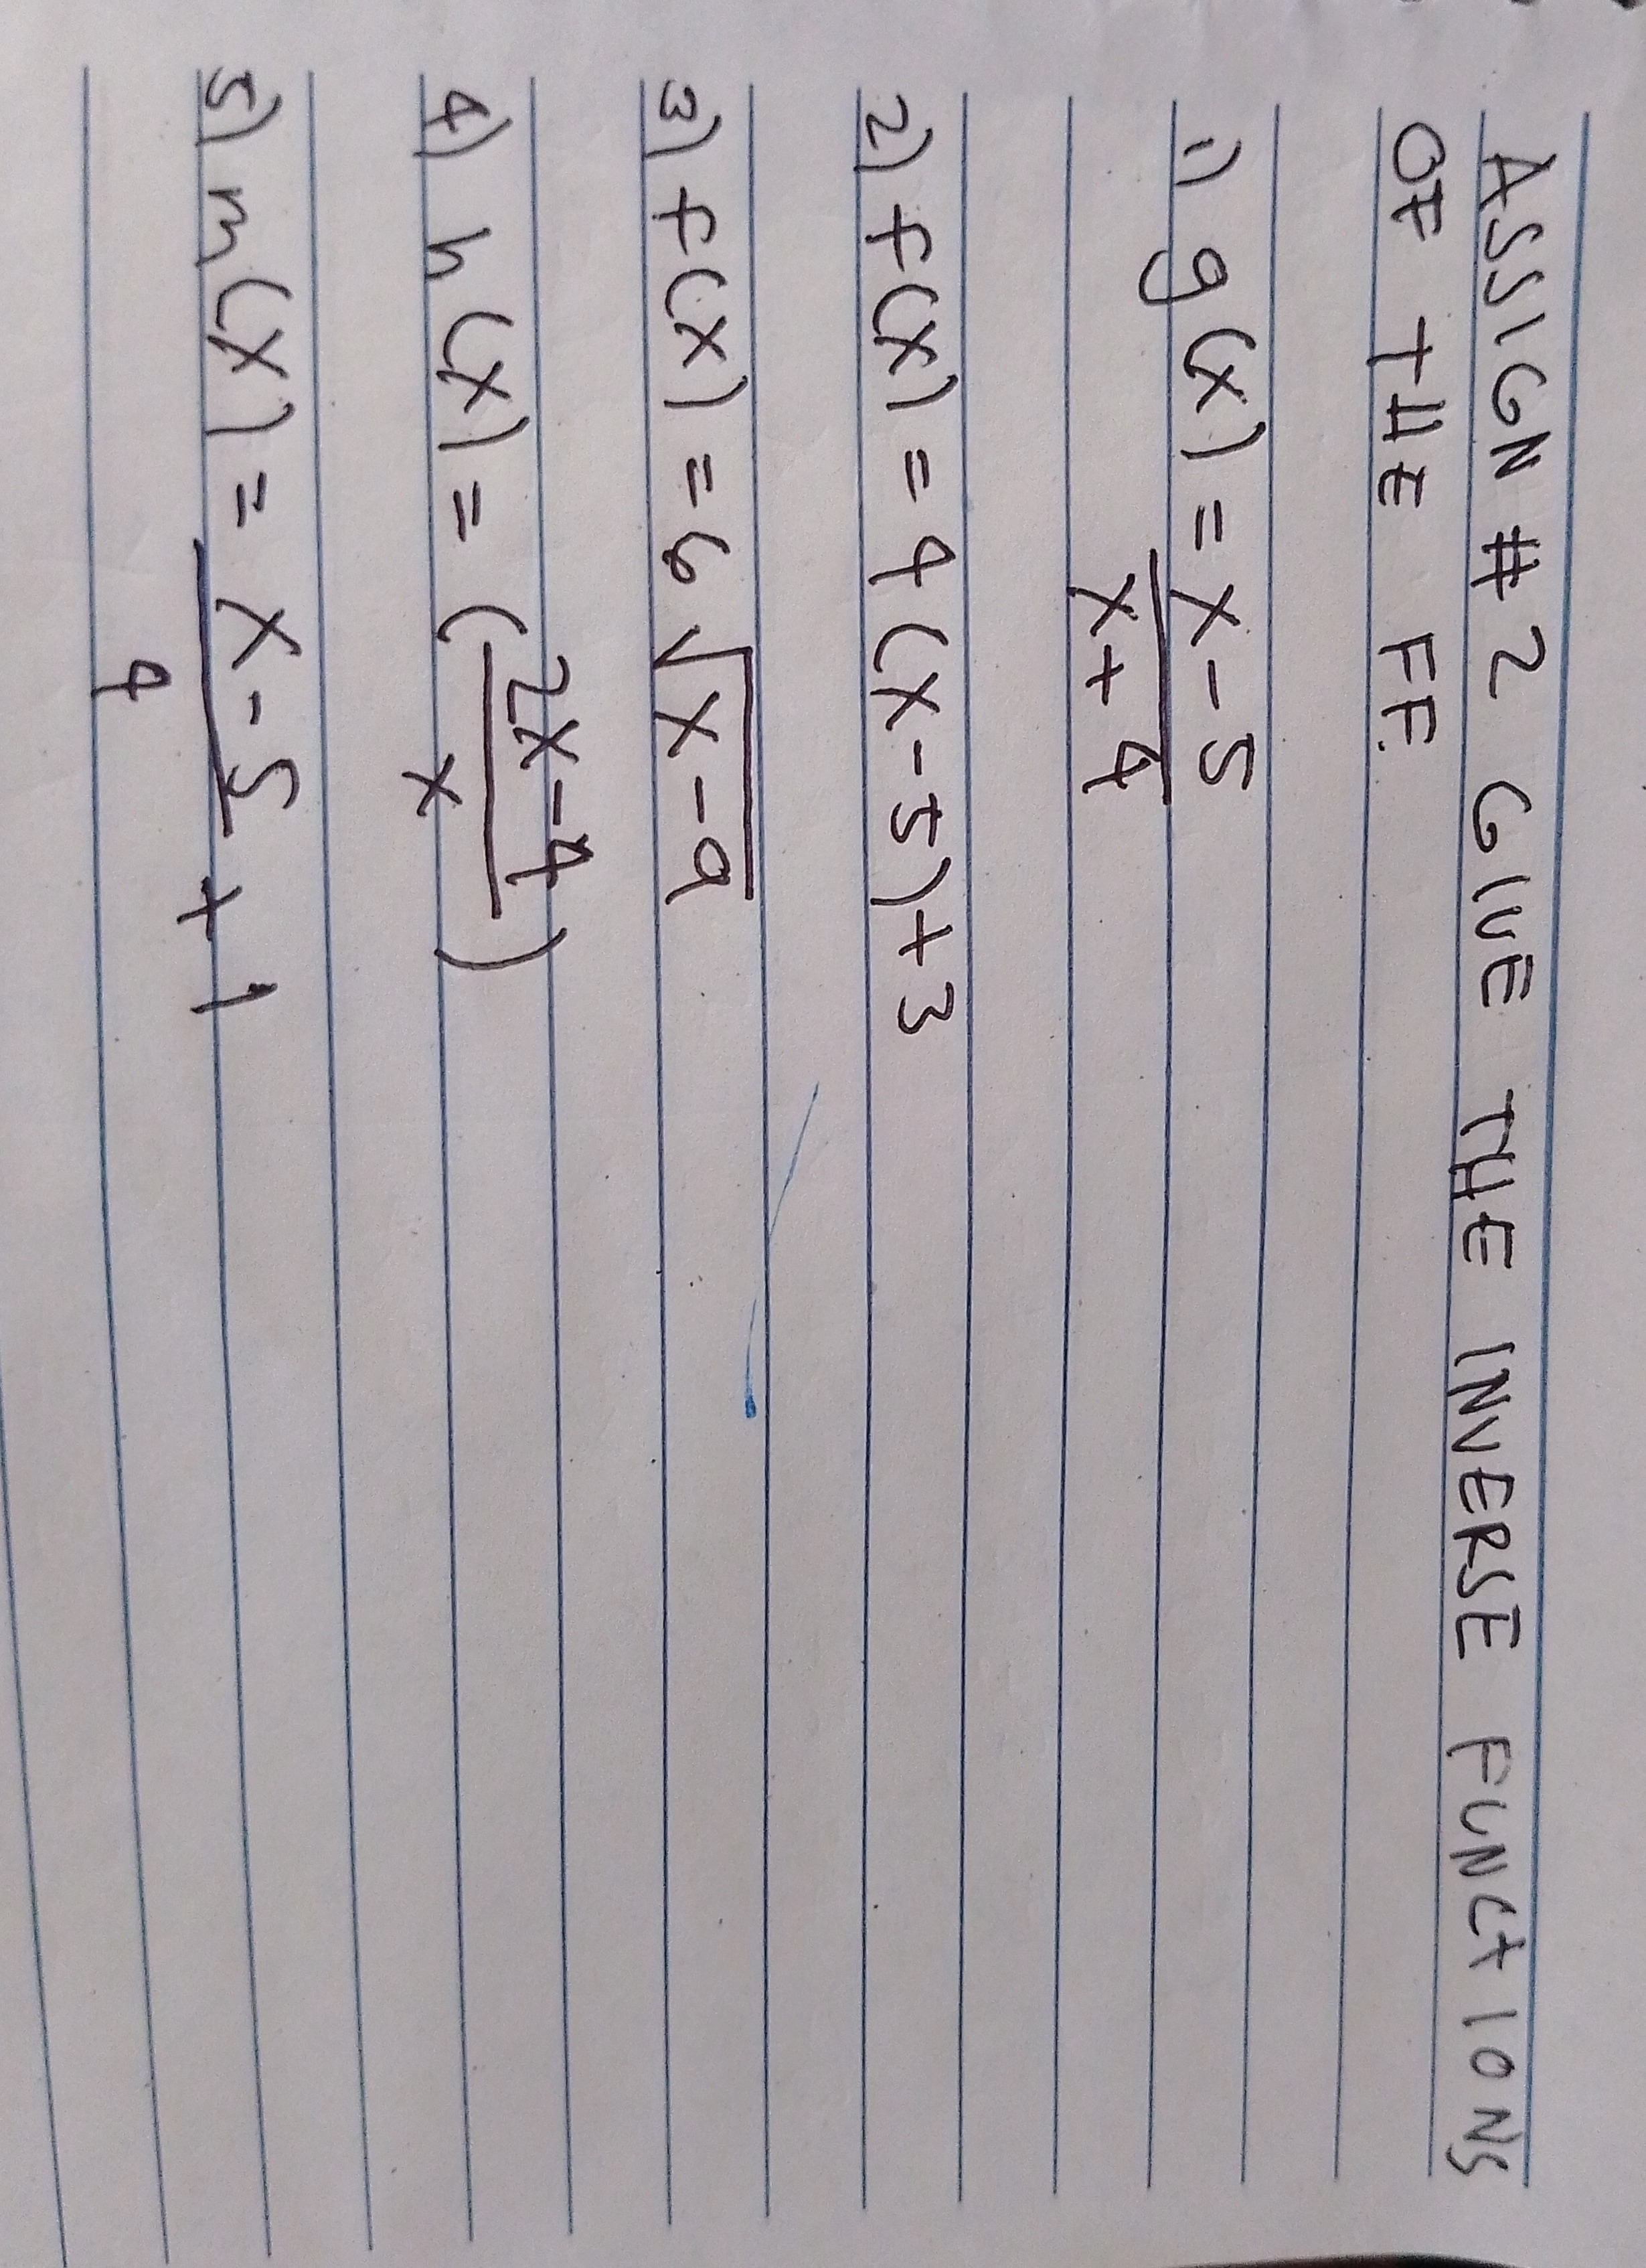 ASSIGN # 2 GIVE THE INVERSE FUNCTIONS
OF THE FF.
1) g(x) = x - 5
x + 4
2) f(x) = 4 (x - 5) + 3
3) f(x) = 6 √x - 9
4) h(x) = ( 2x - 4
x )
5) m(x) = x - 5 + 1
4